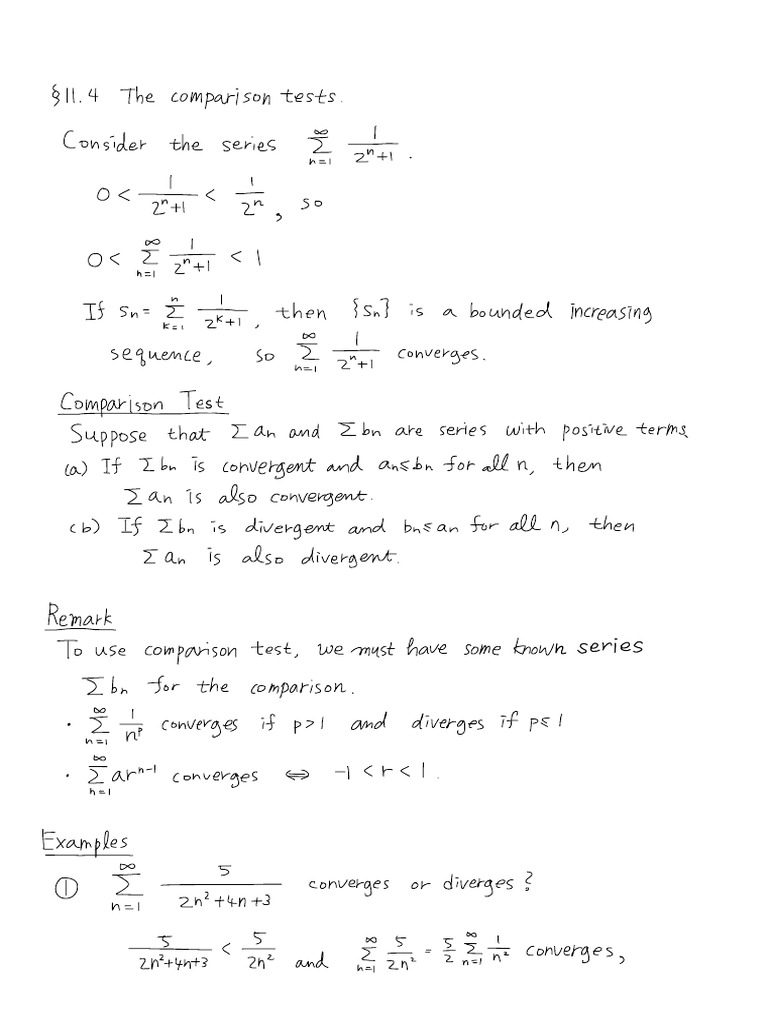 §11.4 The comparison tests.
Consider the series \sum_{n=1}^{∞} \frac{1}{2^n+1}.
0 < \frac{1}{2^n+1} < \frac{1}{2^n}, so
0 < \sum_{n=1}^{∞} \frac{1}{2^n+1} < 1
If s_n = \sum_{k=1}^{n} \frac{1}{2^k+1}, then {s_n} is a bounded increasing
sequence, so \sum_{n=1}^{∞} \frac{1}{2^n+1} converges.
Comparison Test
Suppose that Σ a_n and Σ b_n are series with positive terms
(a) If Σ b_n is convergent and a_n ≤ b_n for all n, then
Σ a_n is also convergent.
(b) If Σ b_n is divergent and b_n ≤ a_n for all n, then
Σ a_n is also divergent.
Remark
To use comparison test, we must have some known series
Σ b_n for the comparison.
· \sum_{n=1}^{∞} \frac{1}{n^p} converges if p>1 and diverges if p≤1
· \sum_{n=1}^{∞} ar^{n-1} converges ⇔ -1 < r < 1.
Examples
① \sum_{n=1}^{∞} \frac{5}{2n^2+4n+3} converges or diverges?
\frac{5}{2n^2+4n+3} < \frac{5}{2n^2} and \sum_{n=1}^{∞} \frac{5}{2n^2} = \frac{5}{2} \sum_{n=1}^{∞} \frac{1}{n^2} converges,